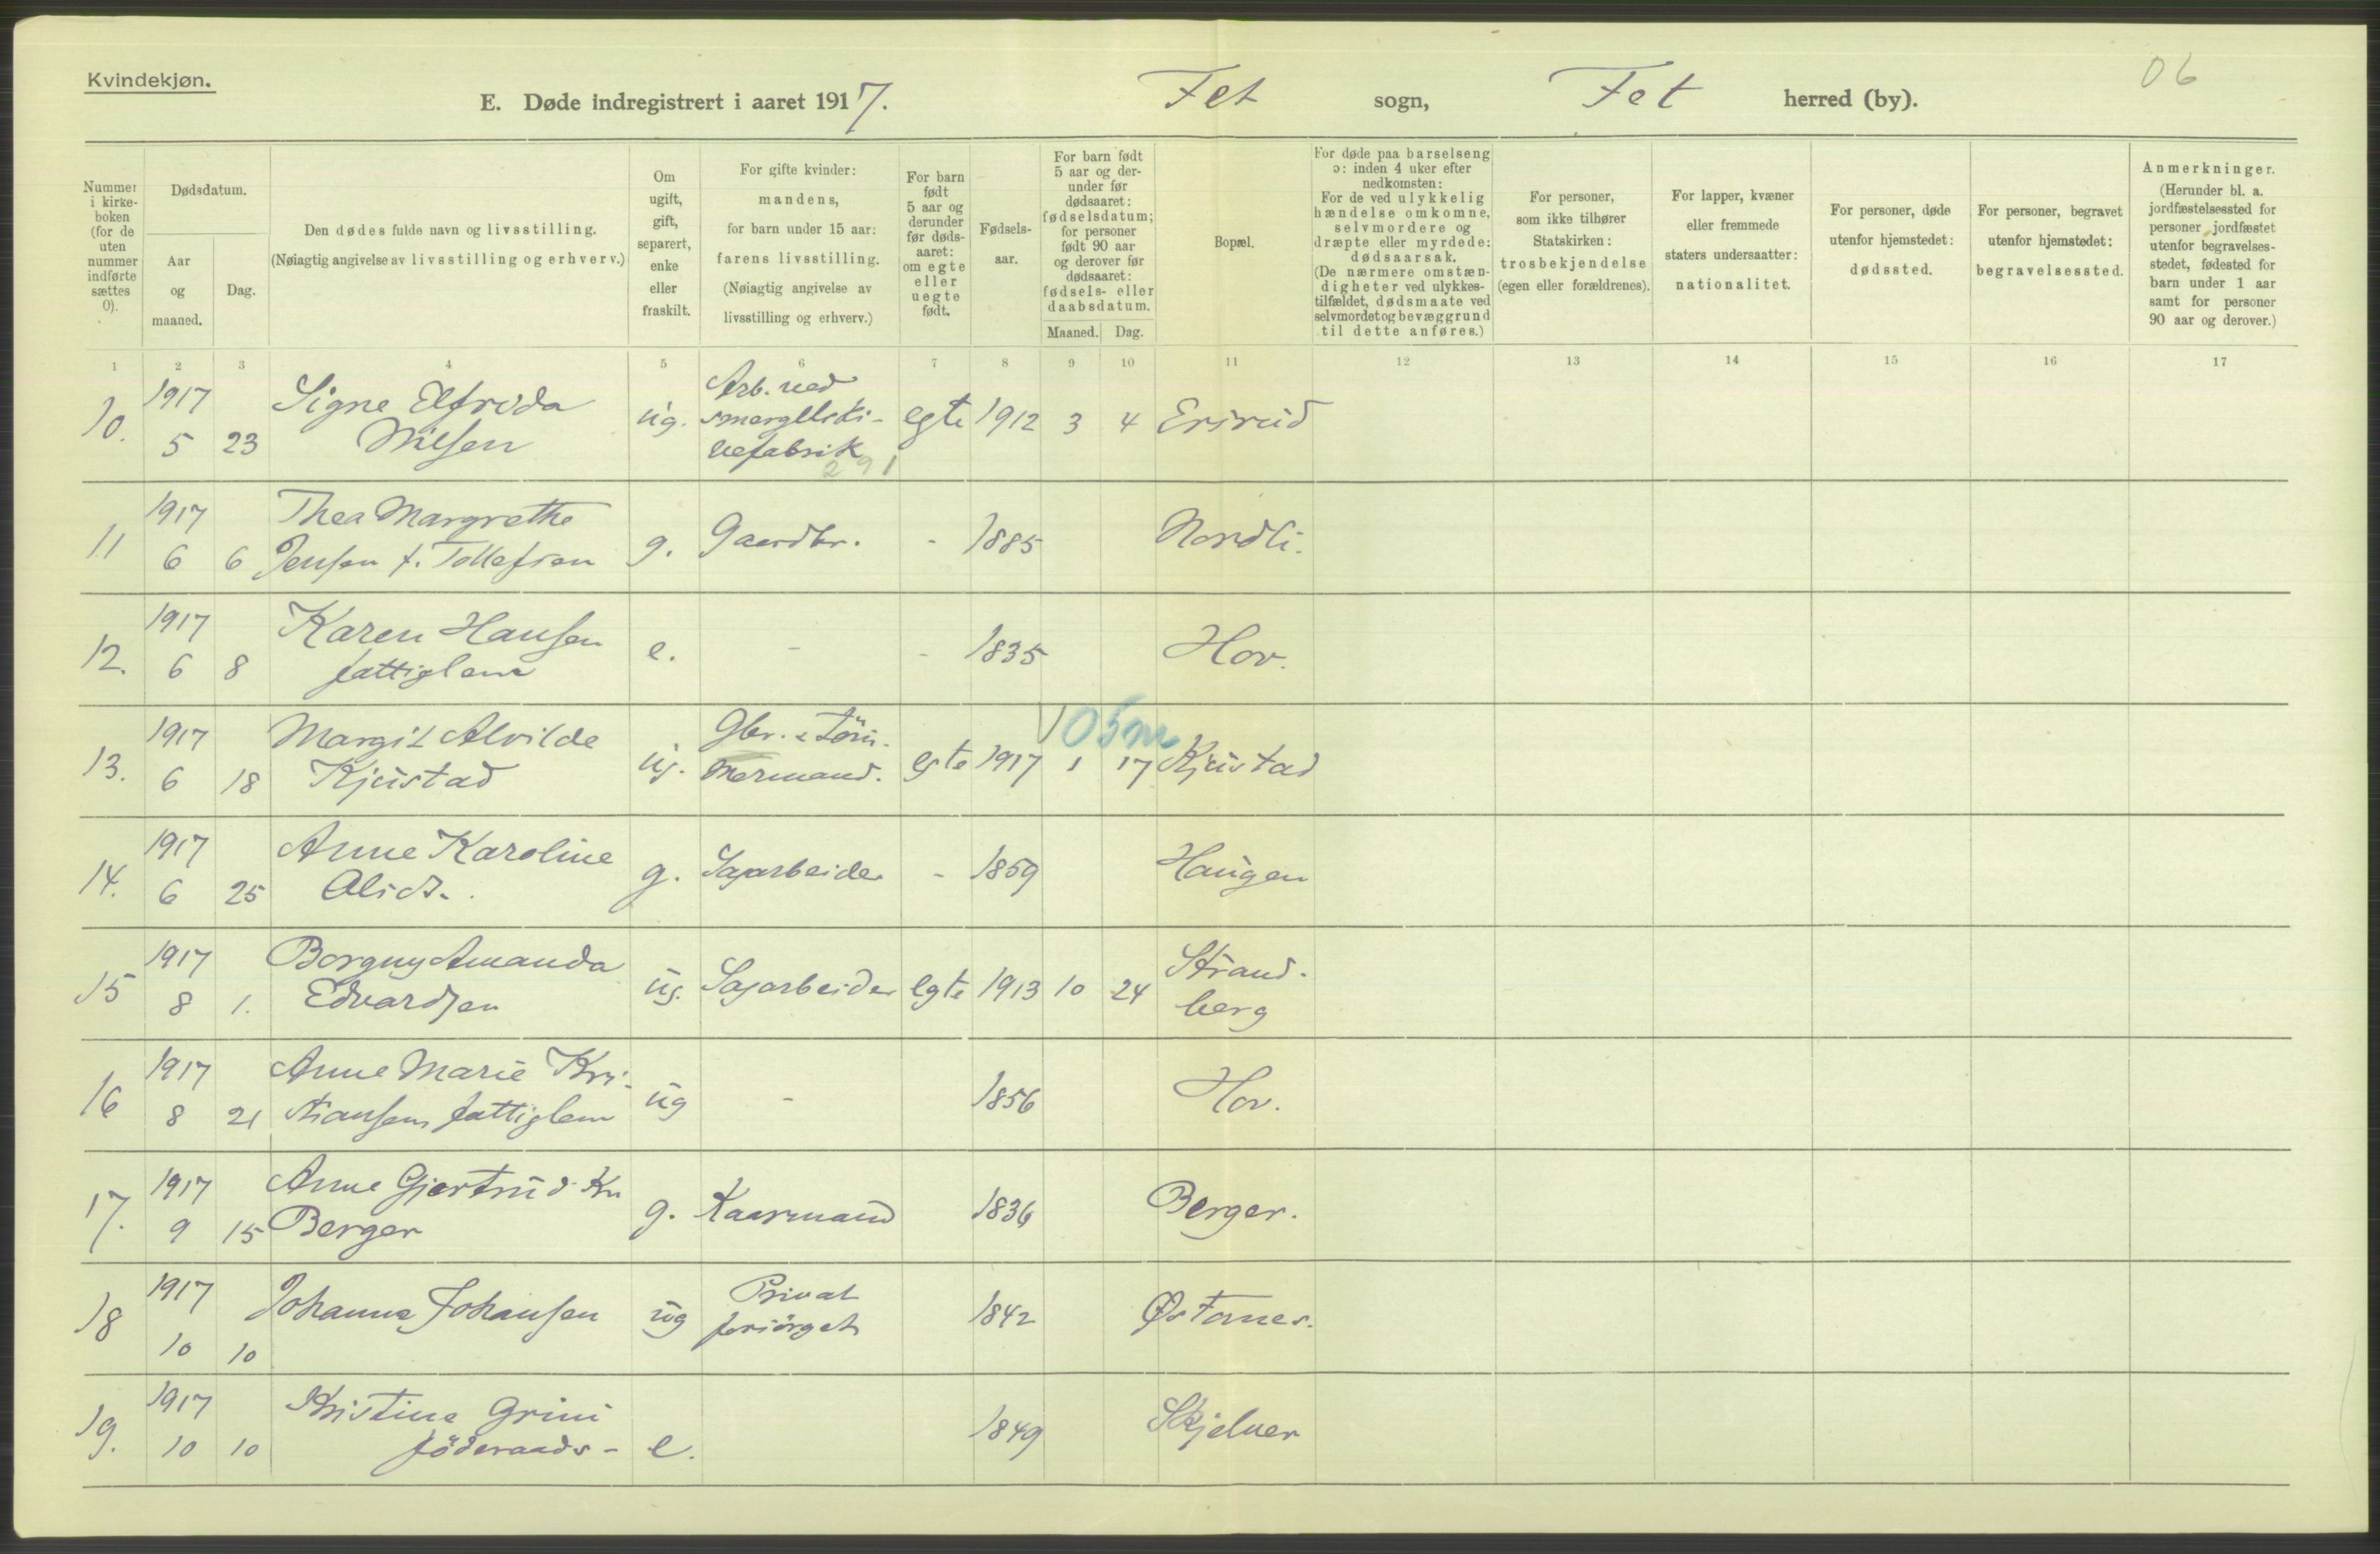 Kvindekjøn.
06
E. Døde indregistrert i aaret 1917. Fet sogn, Fet herred (by).
Nummer i kirkeboken (for de uten nummer indførte sættes 0).
Dødsdatum.
Aar og maaned.
Dag.
Den dødes fulde navn og livsstilling.
(Nøiagtig angivelse av livsstilling og erhverv.)
Om ugift, gift, separert, enke eller fraskilt.
For gifte kvinder: mandens, for barn under 15 aar: farens livsstilling. (Nøiagtig angivelse av livsstilling og erhverv.)
For barn født 5 aar og derunder før dødsaaret: om egte eller uegte født.
Fødselsaar.
For barn født 5 aar og derunder før dødsaaret: fødselsdatum; for personer født 90 aar og derover før dødsaaret: fødsels- eller daabsdatum.
Maaned. Dag.
Bopæl.
For døde paa barselseng ɔ: inden 4 uker efter nedkomsten: For de ved ulykkelig hændelse omkomne, selvmordere og dræpte eller myrdede: dødsaarsak. (De nærmere omstændigheter ved ulykkestilfældet, dødsmaate ved selvmordet og bevæggrund til dette anføres.)
For personer, som ikke tilhører Statskirken: trosbekjendelse (egen eller forældrenes).
For lapper, kvæner eller fremmede staters undersaatter: nationalitet.
For personer, døde utenfor hjemstedet: dødssted.
For personer, begravet utenfor hjemstedet: begravelsessted.
Anmerkninger. (Herunder bl. a. jordfæstelsessted for personer jordfæstet utenfor begravelsesstedet, fødested for barn under 1 aar samt for personer 90 aar og derover.)
1 2 3 4 5 6 7 8 9 10 11 12 13 14 15 16 17
10. 1917 5 23 Signe Elfrida Nilsen ug. Arb. ved smergelskivefabrik egte 1912 3 4 Ersrud
291
11 1917 6 6 Thea Margrethe Jensen f. Tollefsen g. Gaardbr. - 1885 Nordli.
12. 1917 6 8 Karen Hansen fattiglem e. - - 1835 Hov.
05m
13. 1917 6 18 Margit Alvilde Kjustad ug. Gbr. & töm-mermand. egte 1917 1 17 Kjustad
14. 1917 6 25 Anne Karoline Olsdt. g. Sagarbeider - 1859 Haugen
15 1917 8 1. Borgny Amanda Edvardsen ug. Sagarbeider egte 1913 10 24 Strand-berg
16 1917 8 21 Anne Marie Kri-stiansen fattiglem ug - 1856 Hov.
17. 1917 9 15 Anne Gjertrud Kr. Berger g. Kaarmand 1836 Berger.
18 1917 10 10 Johanne Johansen ug Privat forsörget 1842 Østanes.
19. 1917 10 10 Kristine Grini föderaads- e. 1849 Skjelver